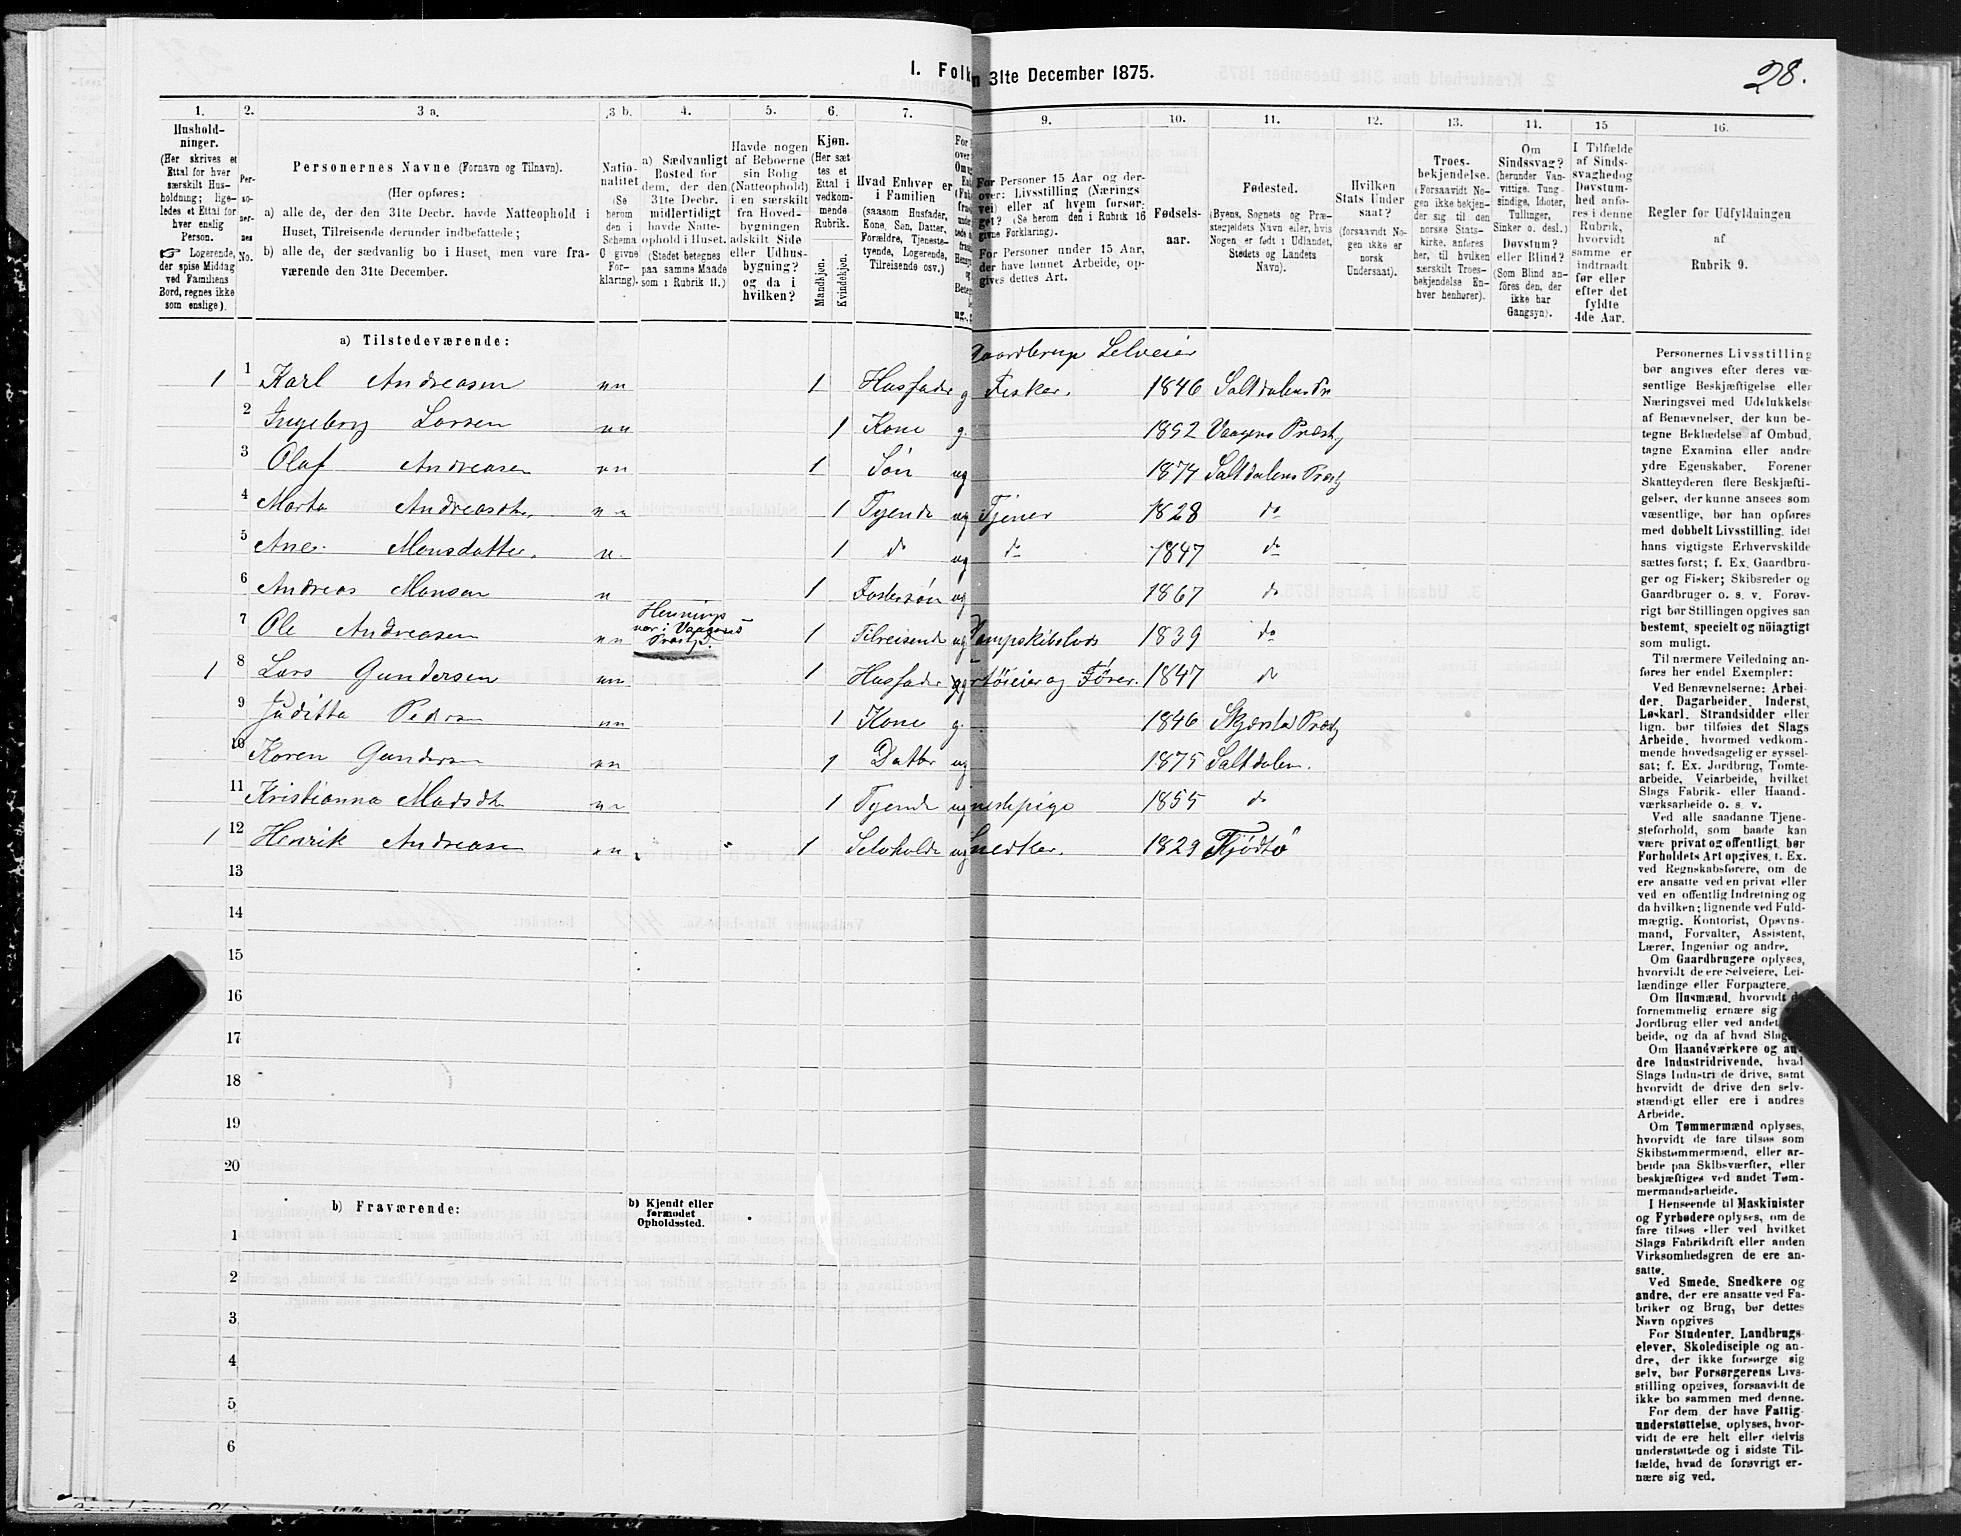 28.
1. Folk
n 31te December 1875.
1.
2.
3 a.
3 b.
4.
5.
6.
7.
9.
10.
11.
12.
13.
14.
15
16.
Hushold-
ninger.
(Her skrives et
Ettal for hver
særskilt Hus-
holdning; lige-
ledes et Ettal for
hver enslig
Person.
Logerende,
der spise Middag
ved Familiens
Bord, regnes ikke
som enslige).
Per-
so-
ner-
nes
No.
Personernes Navne (Fornavn og Tilnavn).
(Her opføres:
a) alle de, der den 31te Decbr. havde Natteophold i
Huset, Tilreisende derunder indbefattede;
b) alle de, der sædvanlig bo i Huset, men vare fra-
værende den 31te December.
Natio-
nalitet
(Se
herom
den i
Schema
O givne
For-
klaring).
a) Sædvanligt
Bosted for
dem, der den
31te Decbr.
midlertidigt
havde Natte-
ophold i Huset.
(Stedet betegnes
paa samme Maade
som i Rubrik 11.)
Havde nogen
af Beboerne
sin Bolig
(Natteophold)
i en særskilt
fra Hoved-
bygningen
adskilt Side
eller Udhus-
bygning?
og da i
hvilken?
Kjøn.
(Her sæt-
tes et
Ettal i
vedkom-
mende
Rubrik.
Mandkjøn.
Kvindekjøn.
Hvad Enhver er
i Familien
(saasom Husfader,
Kone, Søn, Datter,
Forældre, Tjeneste-
tyende, Logerende,
Tilreisende osv.)
For Personer 15 Aar og der-
over: Livsstilling (Nærings-
vei) eller af hvem forsør-
get? (Se herom den i Rubrik 16
givne Forklaring).
For Personer under 15 Aar,
der have lønnet Arbeide, op-
gives dettes Art.
Fødsels-
aar.
Fødested.
(Byens, Sognets og Præ-
stegjeldets Navn eller, hvis
Nogen er født i Udlandet,
Stedets og Landets
Navn).
Hvilken
Stats Under
saat?
(forsaavidt No-
gen ikke er
norsk
Undersaat).
Troes-
bekjendelse.
(Forsaavidt No-
gen ikke bekjen-
der sig til den
norske Stats-
kirke, anføres
her, til hvilken
særskilt Troes-
bekjendelse En-
hver henhører).
Om
Sindssvag?
(herunder Van-
vittige, Tung-
sindige, Idioter,
Tullinger,
Sinker o. desl.)
Døvstum?
eller Blind?
(Som Blind an-
føres den, der
ikke har
Gangsyn).
I Tilfælde
af Sinds-
svaghedog
Døvstum-
hed anfø-
res i denne
Rubrik,
hvorvidt
samme er
indtraadt
før eller
efter det
fyldte
4de Aar.
Regler for Udfyldningen
af
Rubrik 9.
a) Tilstedeværende:
Gaardbruger Selveier
1 1 Karl Andreasen nn 1 Husfader g Fisker. 1846 Saltdalens Pr
2 Ingeborg Larsen nn 1 Kone g. 1852 Vaagens Præstg
3 Olaf Andreasen nn 1 Søn ug 1874 Saltdalens Præstg
4 Marta Andreasdt. nn 1 Tyende ug Tjener 1828 do
5 Ane Monsdatter. n 1 do ug do 1847 do
6 Andreas Monsen n 1 Fostersøn ug 1867 do
Hennings
vær i Vaagens
Præstg.
7 Ole Andreasen nn 1 Tilreisende ug Dampskibslods 1839 do
1 8 Lars Gundersen nn 1 Husfader g rtøieier og Fører. 1847 do
9 Juditta Peders nn 1 Kone g. 1846 Skjerstad Præstg
10 Karen Gunders nn 1 Datter ug 1875 Saltdalen.
11 Kristianna Madsdt nn 1 Tyende ug nestepige 1855 do
1 12 Henrik Andreasen nn 1 Selvholde ug Snedker. 1829 Fjødtø
13
14
15
16
17
18
19
20
b) Fraværende:
b) Kjendt eller
formodet
Opholdssted.
1
2
3
4
5
6
Personernes Livsstilling
bør angives efter deres væ-
sentlige Beskjæftigelse eller
Næringsvei med Udelukkelse
af Benævnelser, der kun be-
tegne Beklædelse af Ombud,
tagne Examina eller andre
ydre Egenskaber. Forener
Skatteyderen flere Beskjæfti-
gelser, der kunne ansees som
væsentlige, bør han opføres
med dobbelt Livsstilling, idet
hans vigtigste Erhvervskilde
sættes først; f. Ex. Gaardbru-
ger og Fisker; Skibsreder og
Gaardbruger o. s. v. Forøv-
rigt bør Stillingen opgives saa
bestemt, specielt og nöiagtigt
som muligt.
Til nærmere Veiledning an-
føres her endel Exempler:
Ved Benævnelserne: Arbei-
der, Dagarbeider, Inderst,
Løskarl, Strandsidder eller
lign. bør tilføies det Slags
Arbeide, hvormed vedkom-
mende hovedsagelig er syssel-
sat; f. Ex. Jordbrug, Tomte-
arbeide, Veiarbeide, hvilket
Slags Fabrik- eller Haand-
værksarbeide o. s. v.
Ved alle saadanne Tjene-
steforhold, som baade kan
være privat og offentligt, bør
Forholdets Art opgives, t. Ex.
ved Regnskabsførere, om de
ere ansatte ved en privat eller
ved en offentlig Indretning og
da hvilken; lignende ved Fuld-
mægtig, Kontorist, Opsyns-
mand, Forvalter, Assistent,
Lærer, Ingeniør og andre.
Om Gaardbrugere oplyses,
hvorvidt de ere Selveiere, Lei-
lændinge eller Forpagtere.
Om Husmænd, hvorvidt de
fornemmelig ernære sig
Jordbrug eller ved andet
beide, og da af hvad Slags
Om Haandværkere og an-
dre Industridrivende, hvad
Slags Industri de drive, samt
hvorvidt de drive den selv-
stændigt eller ere i andres
Arbeide.
Om Tømmermænd oplyses,
hvorvidt de fare tilsøs som
Skibstømmermænd, eller ar-
beide paa Skibsværfter, eller
beskjæftiges ved andet Tøm-
mermandsarbeide.
I Henseende til Maskinister
og Fyrbødere oplyses, om de
fare tilsøs eller ved hvilket
Slags Fabrikdrift eller anden
Virksomhedsgren de ere an-
satte.
Ved Smede, Snedkere og
andre, der ere ansatte ved Fa-
briker og Brug, bør dettes
Navn opgives
For Studenter, Landbrugs-
elever, Skoledisciple og an-
dre, der ikke forsørge sig
selv, bør Forsørgerens Livs-
stilling opgives, forsaavidt de
ikke bo sammen med denne.
For dem, der have Fattig-
understøttelse, oplyses, hvor-
vidt de ere helt eller delvis
understøttede og i sidste Til-
fælde, hvad de forøvrigt er-
nære sig ved.